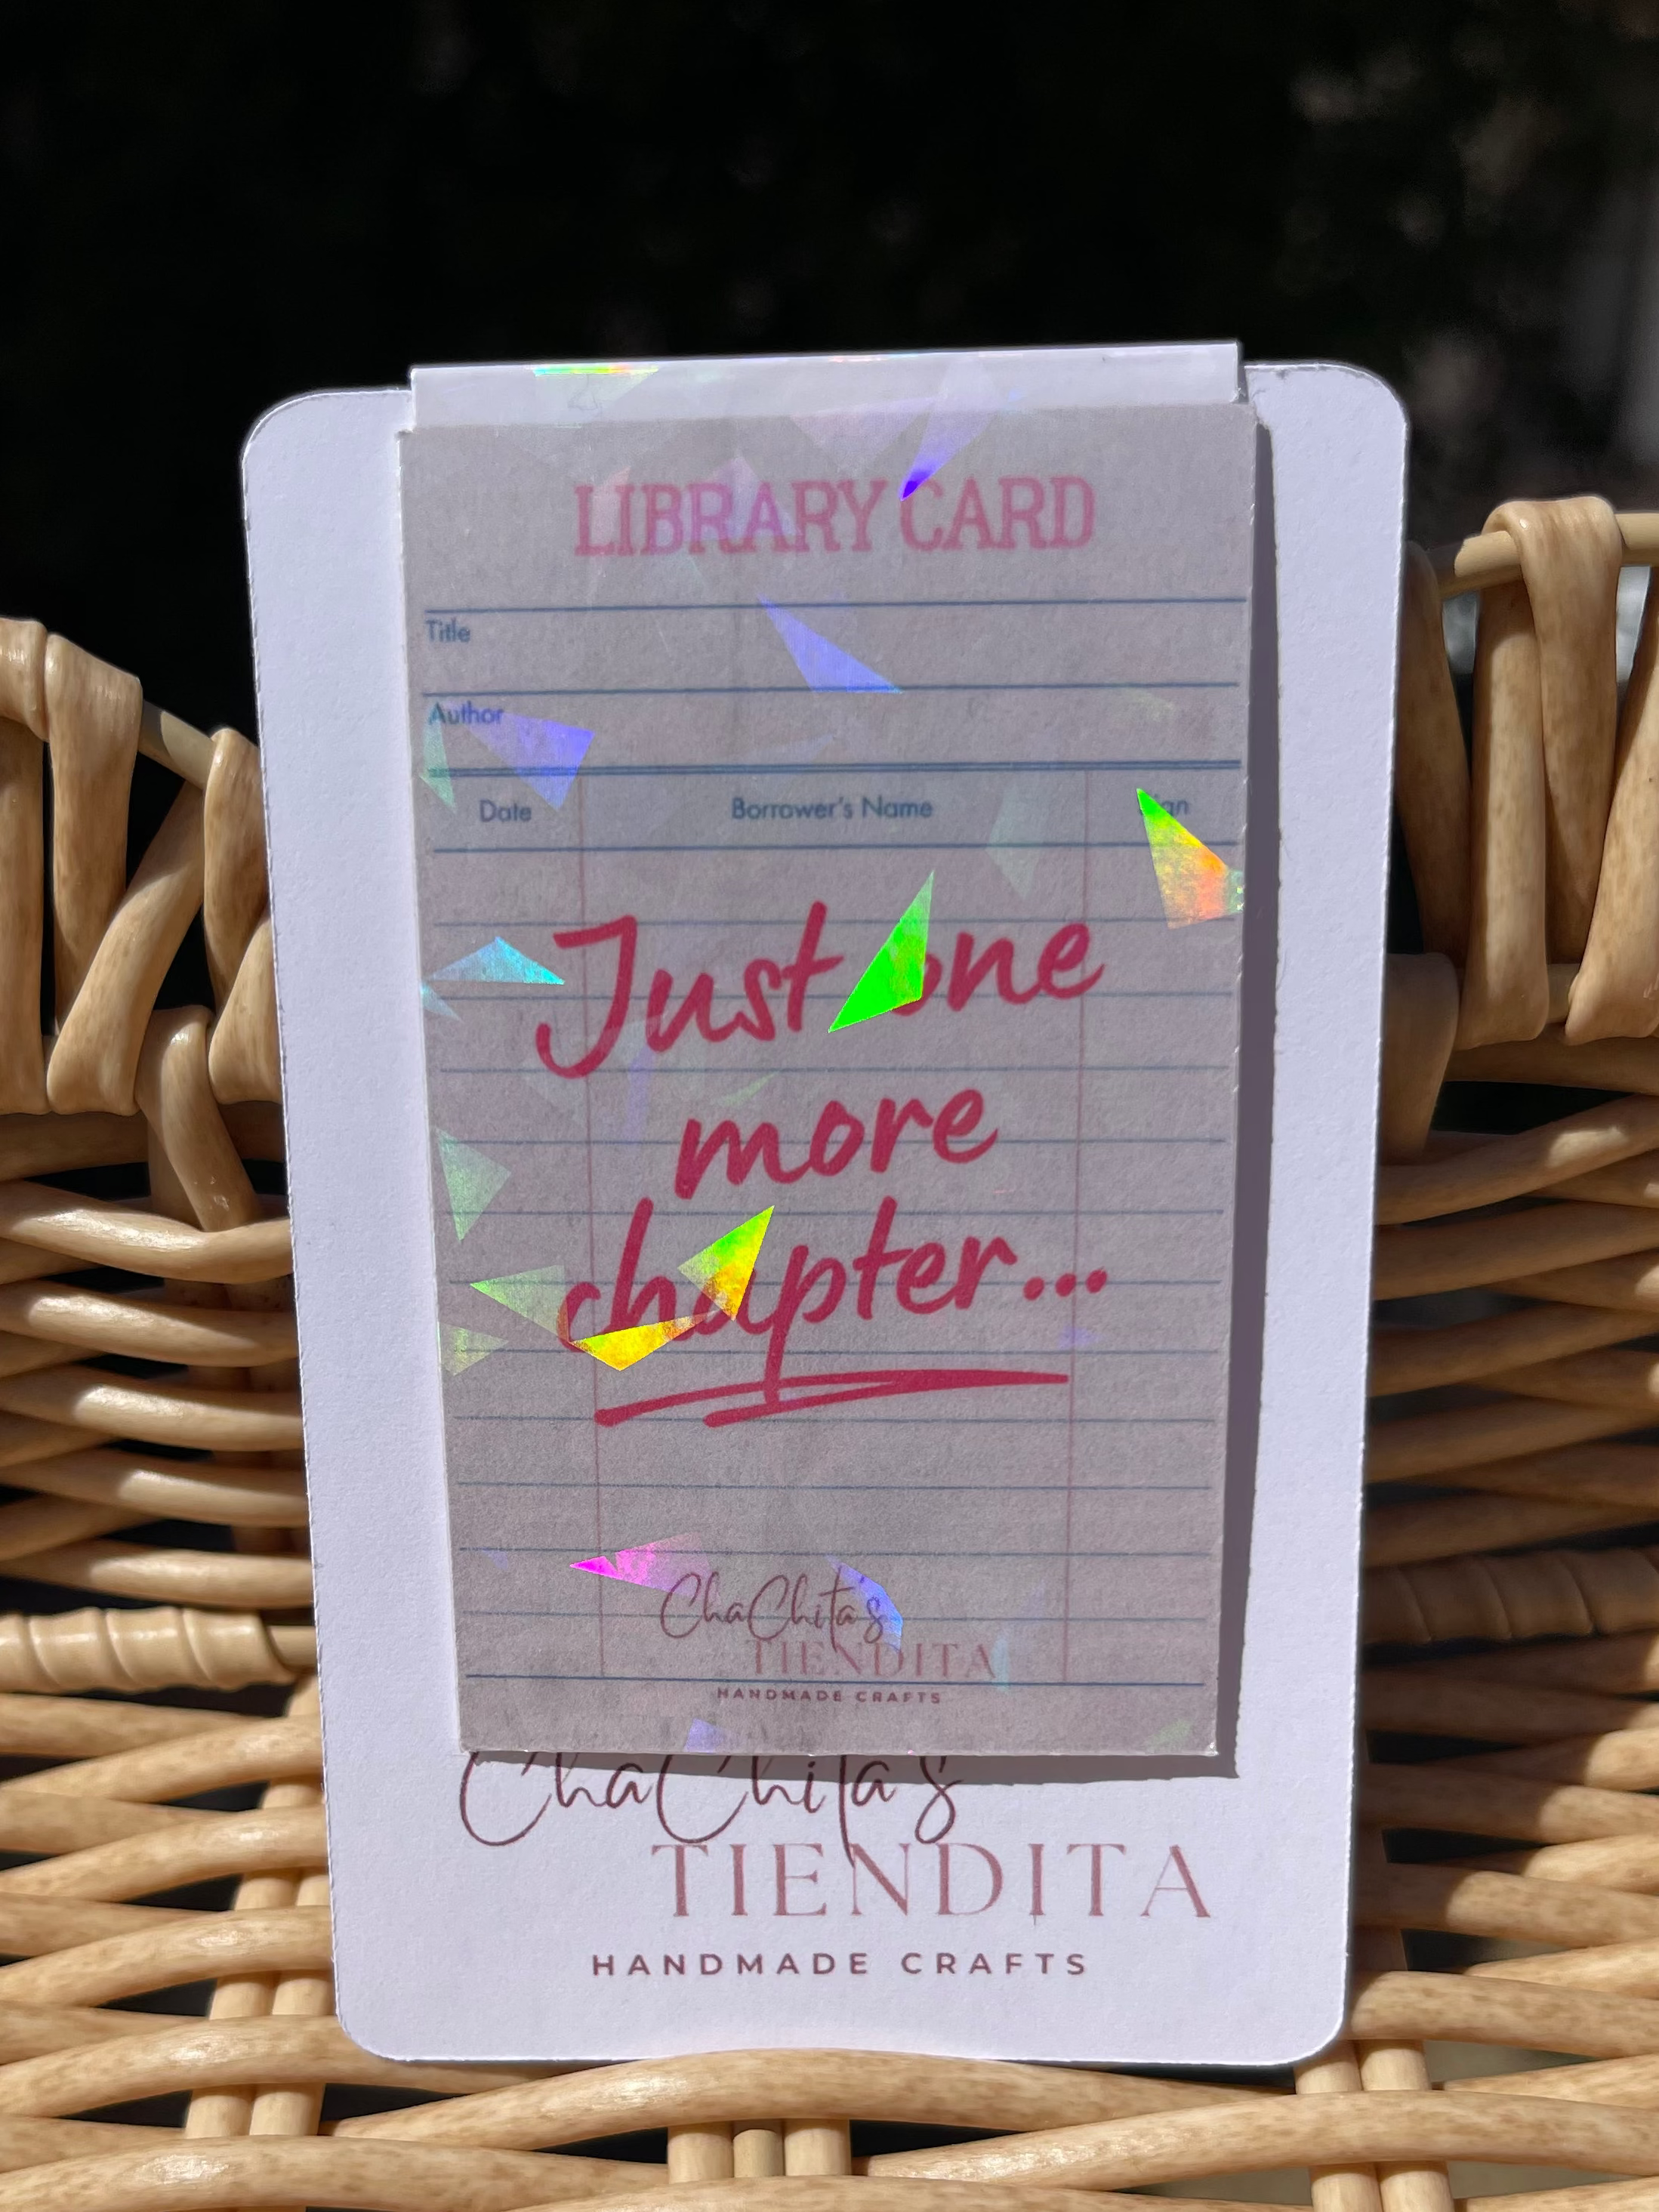 LIBRARY CARD
Title
Author
Date Borrower's Name Sign
Just one
more
chapter...
ChaChita's
TIENDITA
HANDMADE CRAFTS
ChaChita's
TIENDITA
HANDMADE CRAFTS